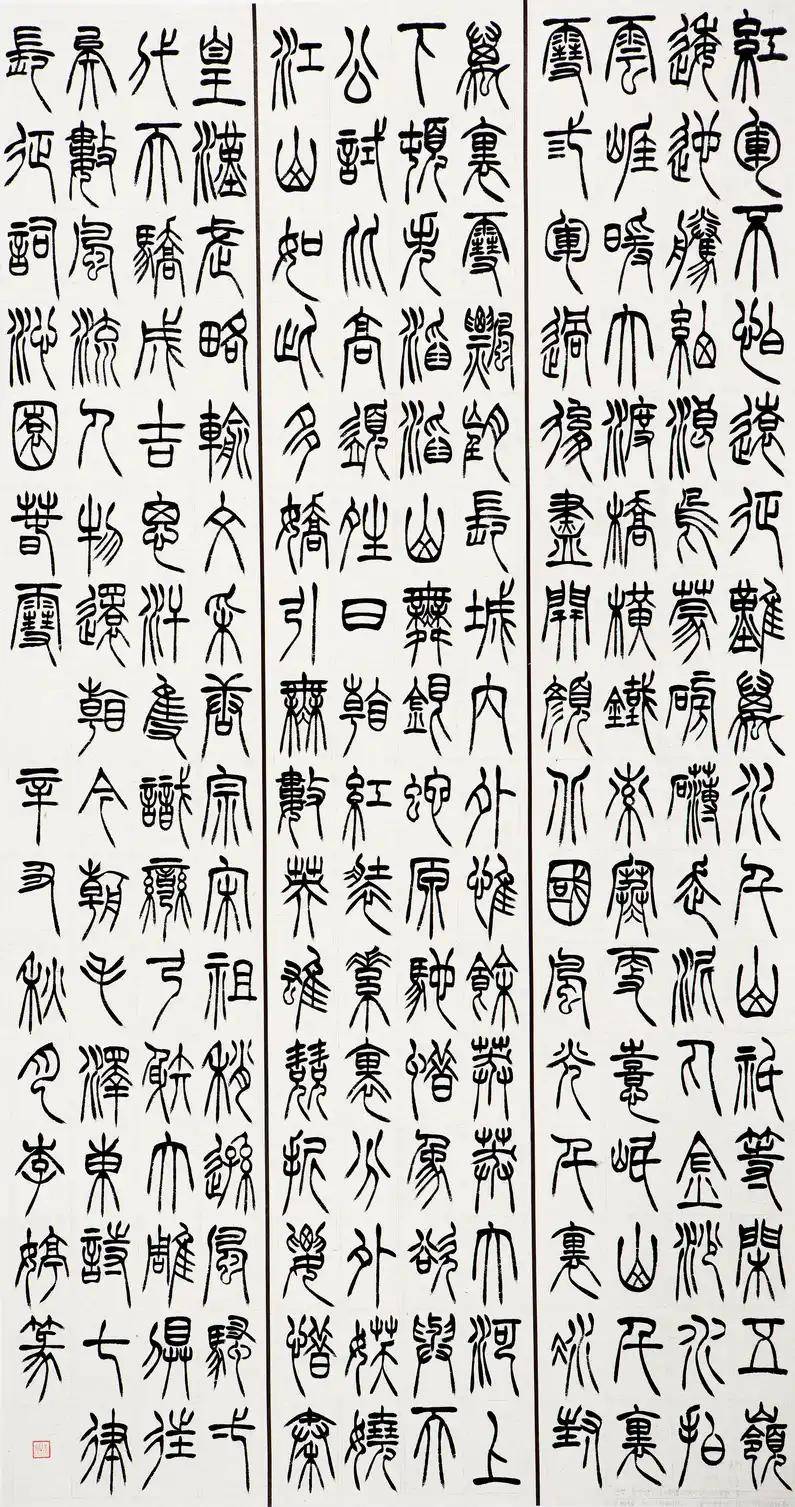 紅軍不怕遠征難萬水千山祇等閑五嶺
逶迤騰細浪烏蒙磅礴走泥丸金沙水拍
雲崖暖大渡橋橫鐵索寒更喜岷山千裏
雪三軍過後盡開顏北國風光千裏冰封
萬裏雪飄望長城內外惟餘莽莽大河上
下頓失滔滔山舞銀蛇原馳蜡象欲與天
公試比高須晴日看紅裝素裹分外妖嬈
江山如此多嬌引無數英雄競折腰惜秦
皇漢武略輸文采唐宗宋祖稍遜風騷一
代天驕成吉思汗隻識彎弓射大雕俱往
矣數風流人物還看今朝毛澤東詩七律
長征詞沁園春雪 辛丑秋月李婷篆